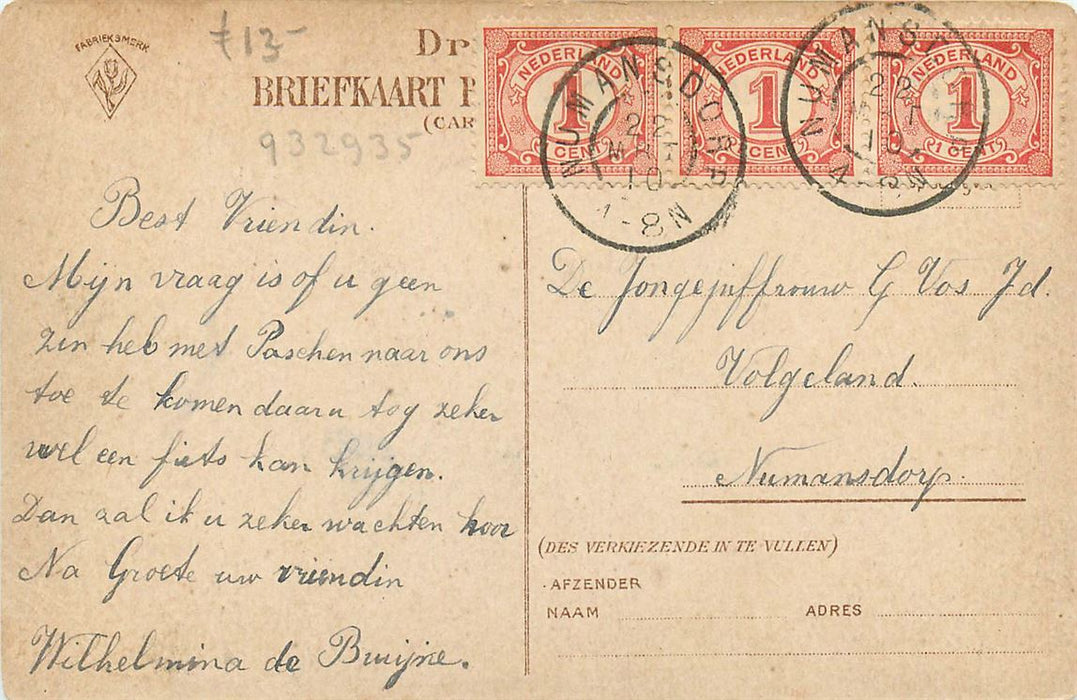 FABRIEKSMERK
f 13-
Dr
BRIEFKAART P
(CAR
932935
NEDERLAND 1 CENT
NEDERLAND 1 CENT
NEDERLAND 1 CENT
NUMANSDORP 22 MRT 10 4-8N
NUMANSD 22 MRT 10 4-8N
Best Vriendin.
Mijn vraag is of u geen
zin heb met Paschen naar ons
toe te komen daar u tog zeker
wel een fiets kan krijgen.
Dan zal ik u zeker wachten hoor
Na Groete uw vriendin
Wilhelmina de Bruijne.
De Jongejuffrouw G Vos Jd.
Volgeland.
Numansdorp.
(DES VERKIEZENDE IN TE VULLEN)
AFZENDER
NAAM ADRES